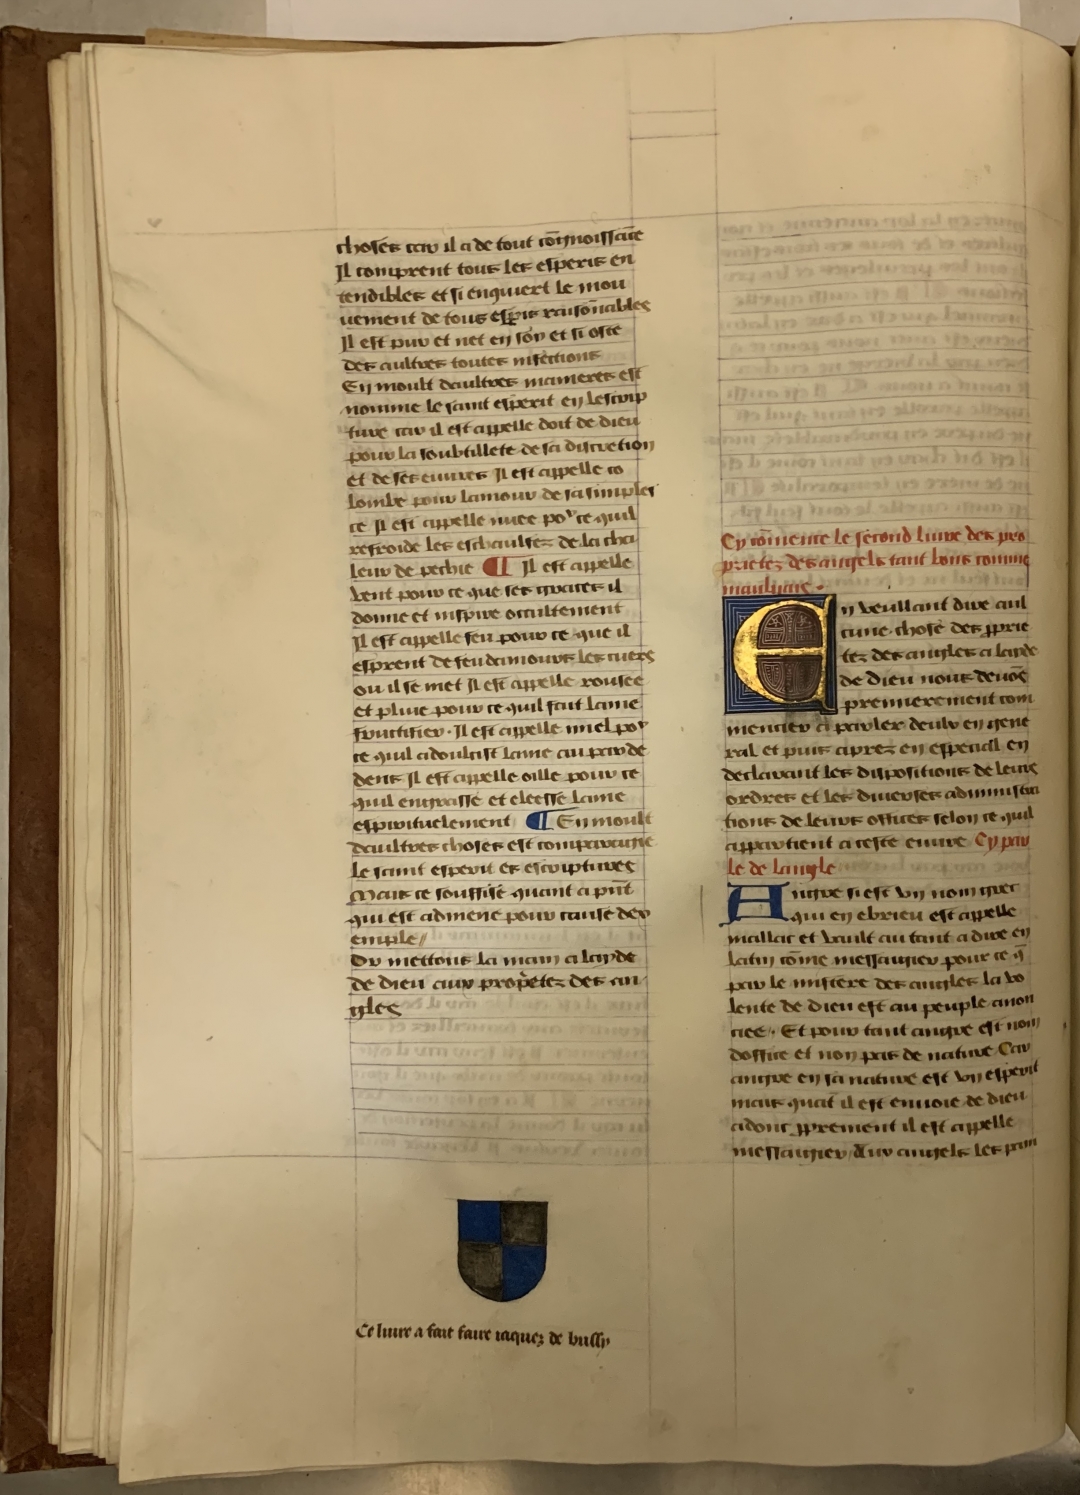 choses car il a de tout cõgnoissãce
Il comprent tous les esperis en
tendibles et si enquiert le mou
uement de tous esp̃is raisoñables
Il est pur et net en soy et si oste
des aultres toutes infections
En moult daultres manieres est
nomme le saint esperit en lescrip
ture car il est appelle doit de dieu
pour la soubtillete de sa discretion
et de ses euures Il est appelle co
lombe pour lamour de sa simples
ce Il est appelle nuee poʳ ce quil
refroide les eschaulfez de la cha
leur de pechie ¶ Il est appelle
vent pour ce que ses graces il
donne et inspire occultement
Il est appelle feu pour ce que il
esprent de feu damours les cuers
ou il se met Il est appelle rousee
et pluie pour ce quil fait lame
fructifier. Il est appelle miel poʳ
ce quil adoulcist lame au par de
dens Il est appelle oille pour ce
quil engraisse et eleesse lame
espirituelement ¶ En moult
daultres choses est comparagie
le saint esperit es escriptures
Mais ce souffise quant a p̃nt
qui est admene pour cause dex
emple//
Or mettons la main a layde
de dieu aux prop̃etez des an
gles
Cy cõmence le second liure des pro
prietez des angels tant bons comme
mauluais.
En veullant dire aul
cune chose des p̱prie
tez des angles a layde
de dieu nous deuõs
premierement com
mencier a parler deulx en gene
ral et puis aprez en especial en
declarant les dispositions de leurs
ordres et les diuerses administra
tions de leurs offices selon ce quil
appartient a ceste euure Cy par
le de langle
Angre si est vng nom grec
qui en ebrieu est appelle
mallac et vault autant a dire en
latin cõme messagier pour ce q̃
par le mistere des angles la vo
lente de dieu est au peuple anon
cee. Et pour tant angre est nom
doffice et non pas de nature Car
angre en sa nature est vng esperit
mais quãt il est enuoie de dieu
adonc p̱prement il est appelle
messagier Aux angels les pain
Ce liure a fait faire iaquez de bussy